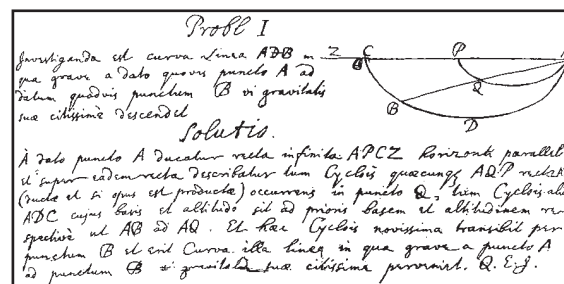 Probl I
Investiganda est curva Linea ADB in
qua grave a dato quovis puncto A ad
datum quodvis punctum B vi gravitatis
suæ citissimè descendet
Z C P
Q
B
D
Solutio.
A dato puncto A ducatur recta infinita APCZ horizonti parallela
et super eadem recta describatur tum Cyclois quæcunq AQP rectæ
(ductæ et si opus est productæ) occurrens in puncto Q, tum Cyclois
ADC cujus basis et altitudo sit ad prioris basem et altitudinem re-
spectivè ut AB ad AQ. Et hæc Cyclois novissima transibit per
punctum B et erit Curva illa linea in qua grave a puncto A
ad punctum B vi gravitatis suæ citissimè perveniet. Q. E. J.